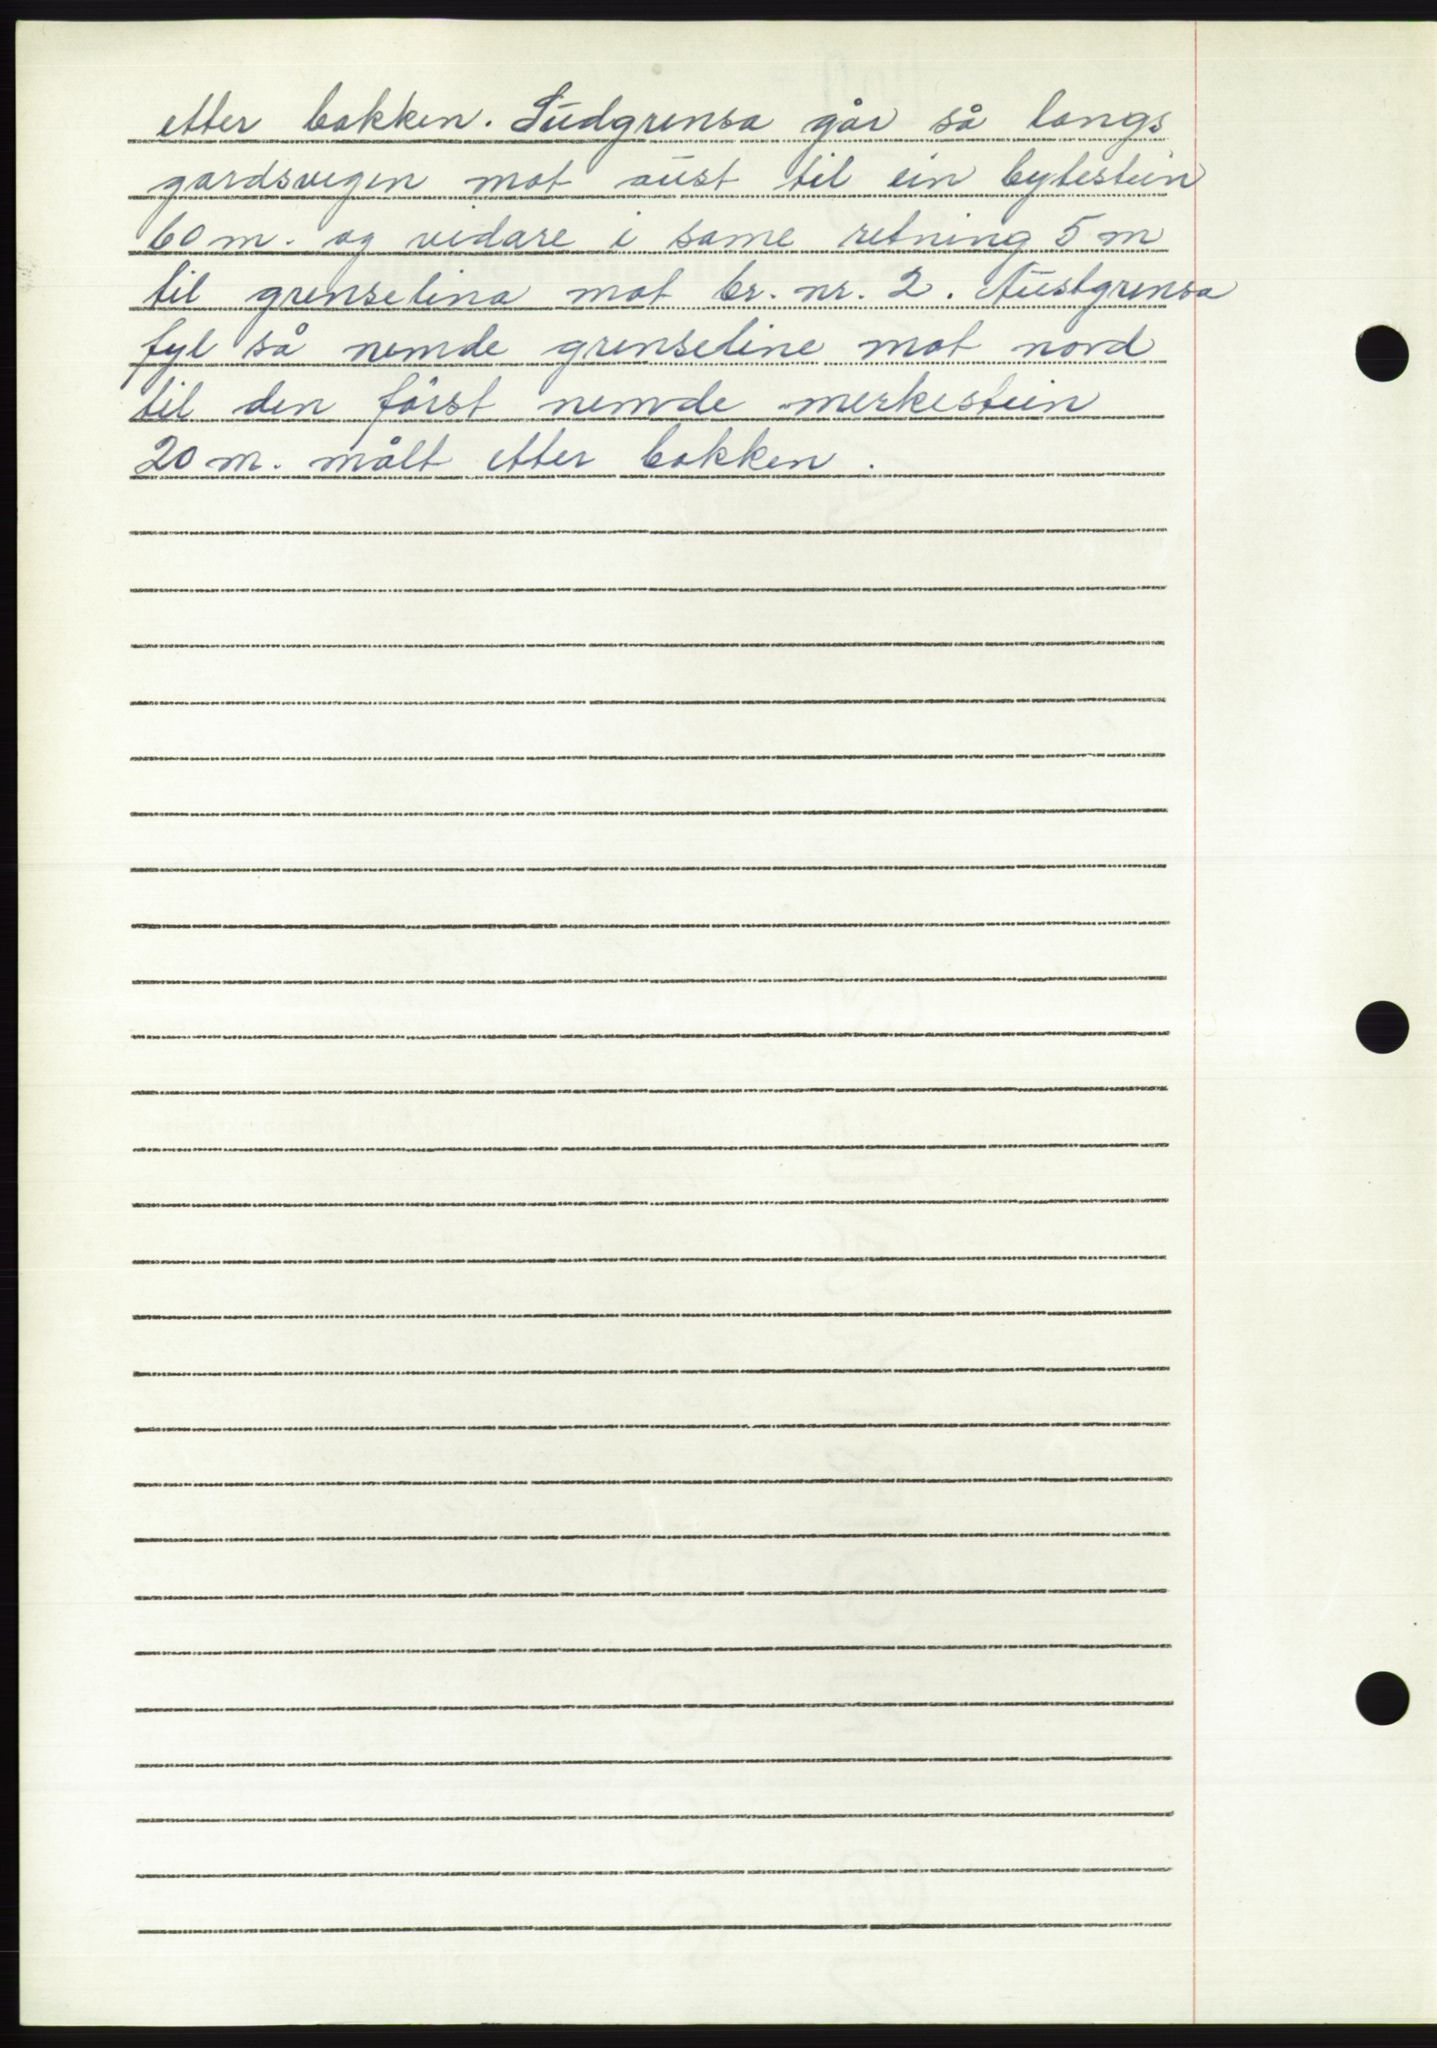 etter bakken. Sudgrensa går så langs
gardsvegen mot aust til ein bytestein
60 m. og vidare i same retning 5 m
til grenselina mot br. nr. 2. Austgrensa
fyl så nemde grenseline mot nord
til den först nemde merkestein
20 m. målt etter bakken.